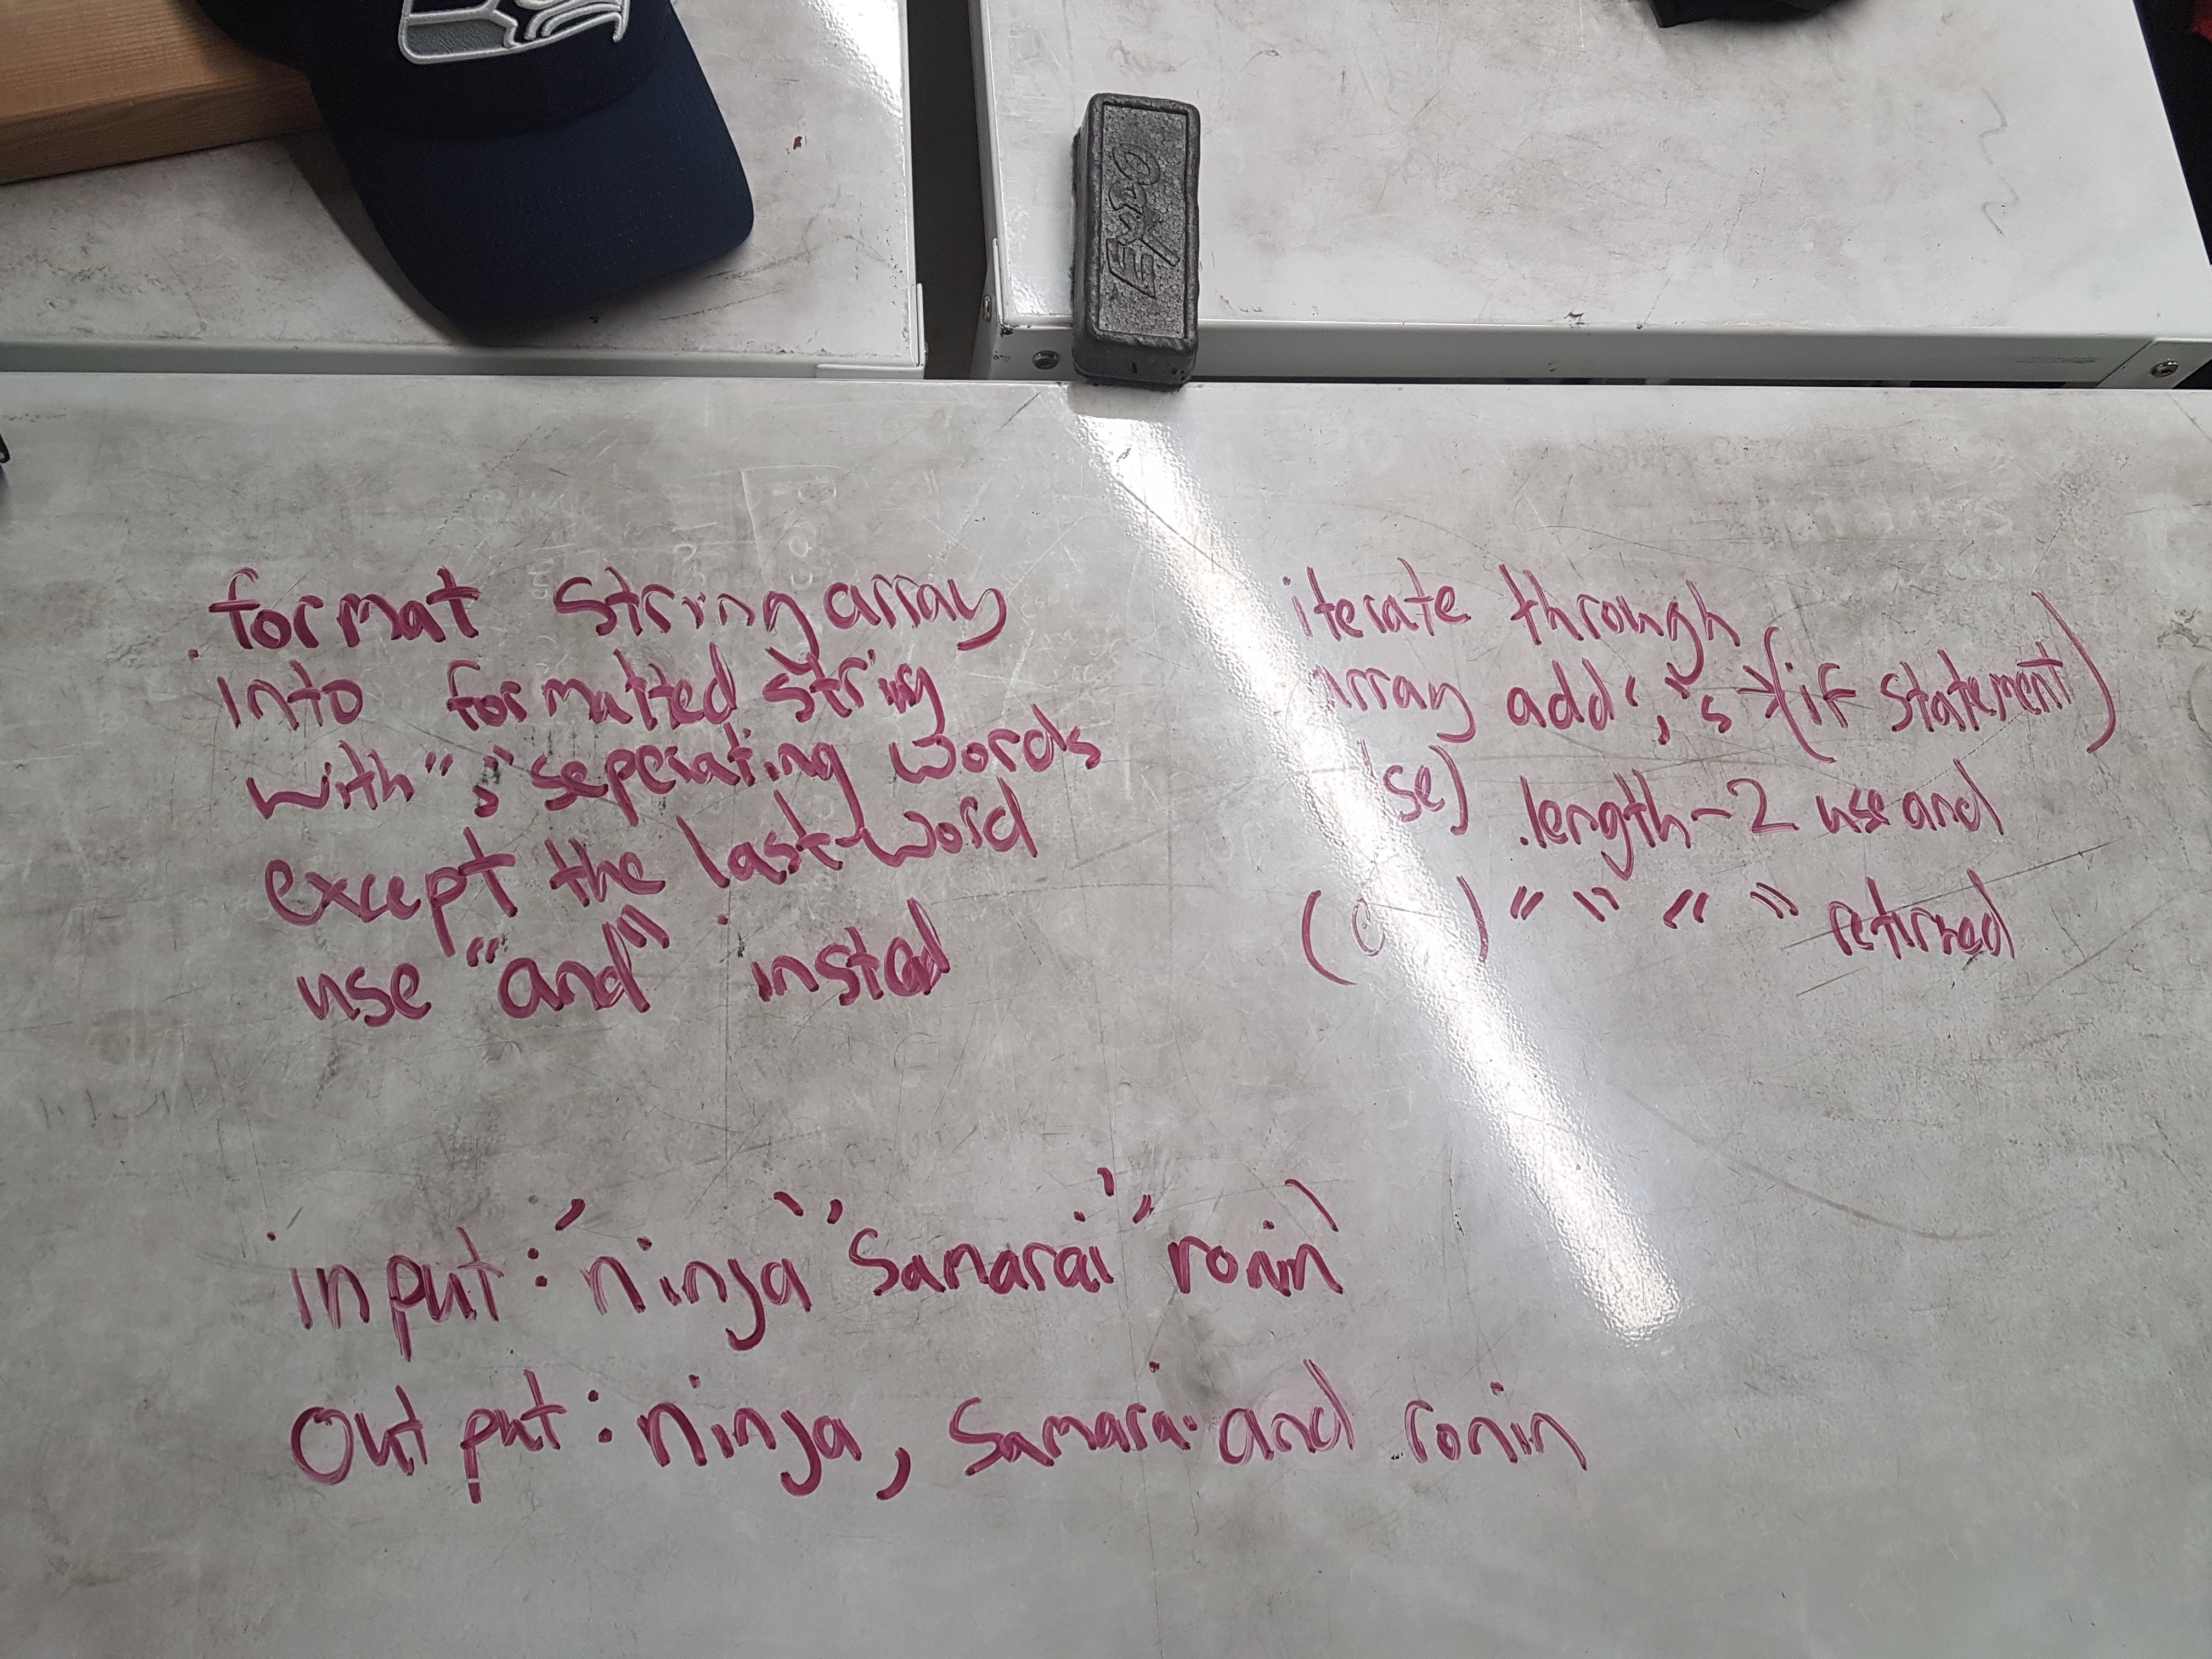 EXPO
. format String array
into formatted string
with "," seperating words
except the last word
use "and" insted
iterate through
array add ','s → (if statement)
.length-2 use and
" " " " retirned
input: 'ninja' 'Samarai' 'ronin'
Output: ninja, Samarai and ronin